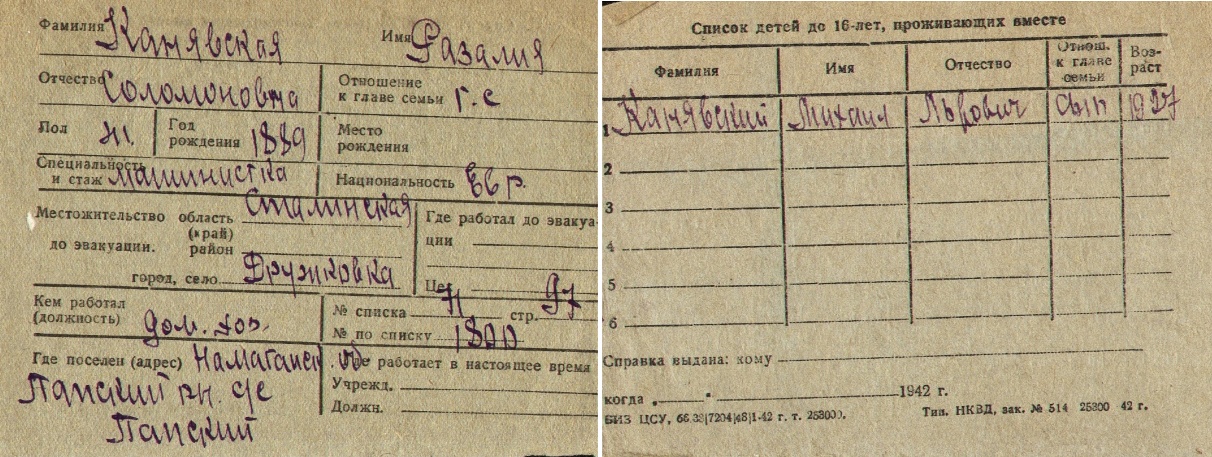 Фамилия Канявская Имя Разалия
Отчество Соломоновна Отношение к главе семьи г.с
Пол Ж. Год рождения 1889 Место рождения
Специальность и стаж машинистка Национальность Евр.
Местожительство до эвакуации. область (край) Сталинская
район
город, село Дружковка
Где работал до эвакуации
Цех
Кем работал (должность) дом. хоз.
№ списка 71 стр. 97
№ по списку 1800
Где поселен (адрес) Намаганск. об
Папский рн. с/с
Папский
Где работает в настоящее время
Учрежд.
Должн.
Список детей до 16-лет, проживающих вместе
Фамилия Имя Отчество Отнош. к главе семьи Возраст
1 Канявский Михаил Львович сын 1927
2
3
4
5
6
Справка выдана: кому
когда „ “ 1942 г.
БИЗ ЦСУ, 1-42 г. т. 25300.
Тип. НКВД, зак. № 514 25300 42 г.